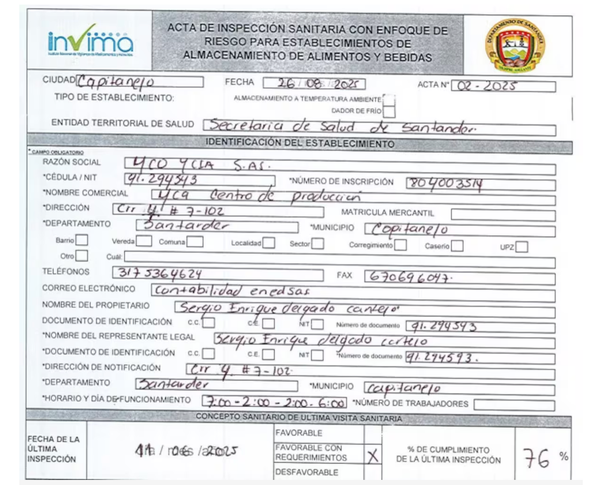 invima
ACTA DE INSPECCIÓN SANITARIA CON ENFOQUE DE
RIESGO PARA ESTABLECIMIENTOS DE
ALMACENAMIENTO DE ALIMENTOS Y BEBIDAS
CIUDAD Capitanejo FECHA 26/08/2025 ACTA N° 02-2025
TIPO DE ESTABLECIMIENTO: ALMACENAMIENTO A TEMPERATURA AMBIENTE
DADOR DE FRÍO
ENTIDAD TERRITORIAL DE SALUD Secretaria de Salud de Santander.
IDENTIFICACIÓN DEL ESTABLECIMIENTO
* CAMPO OBLIGATORIO
RAZÓN SOCIAL S.AS.
*CÉDULA / NIT 91.294543 *NÚMERO DE INSCRIPCIÓN 804003514
*NOMBRE COMERCIAL Centro de producción
*DIRECCIÓN Crr 4. # 7-102 MATRICULA MERCANTIL
*DEPARTAMENTO Santander *MUNICIPIO Capitanejo
Barrio Vereda Comuna Localidad Sector Corregimiento Caserio UPZ
Otro Cuál:
TELÉFONOS 3175364624 FAX 670696047.
CORREO ELECTRÓNICO Contabilidad enedsas
NOMBRE DEL PROPIETARIO Sergio Enrique delgado
DOCUMENTO DE IDENTIFICACIÓN C.C. C.E. NIT Número de documento 91.294543
*NOMBRE DEL REPRESENTANTE LEGAL Sergio Enrique delgado
*DOCUMENTO DE IDENTIFICACIÓN C.C. C.E. NIT *Número de documento 91.294593.
*DIRECCIÓN DE NOTIFICACIÓN Crr 4. # 7-102.
*DEPARTAMENTO Santander *MUNICIPIO Capitanejo
*HORARIO Y DÍA DE FUNCIONAMIENTO 7:00-2:00-2:00.6:00 *NÚMERO DE TRABAJADORES
CONCEPTO SANITARIO DE ULTIMA VISITA SANITARIA
FECHA DE LA
ÚLTIMA
INSPECCIÓN
11 / 06 / 2025
FAVORABLE
FAVORABLE CON
REQUERIMIENTOS X
DESFAVORABLE
% DE CUMPLIMIENTO
DE LA ÚLTIMA INSPECCIÓN
76 %